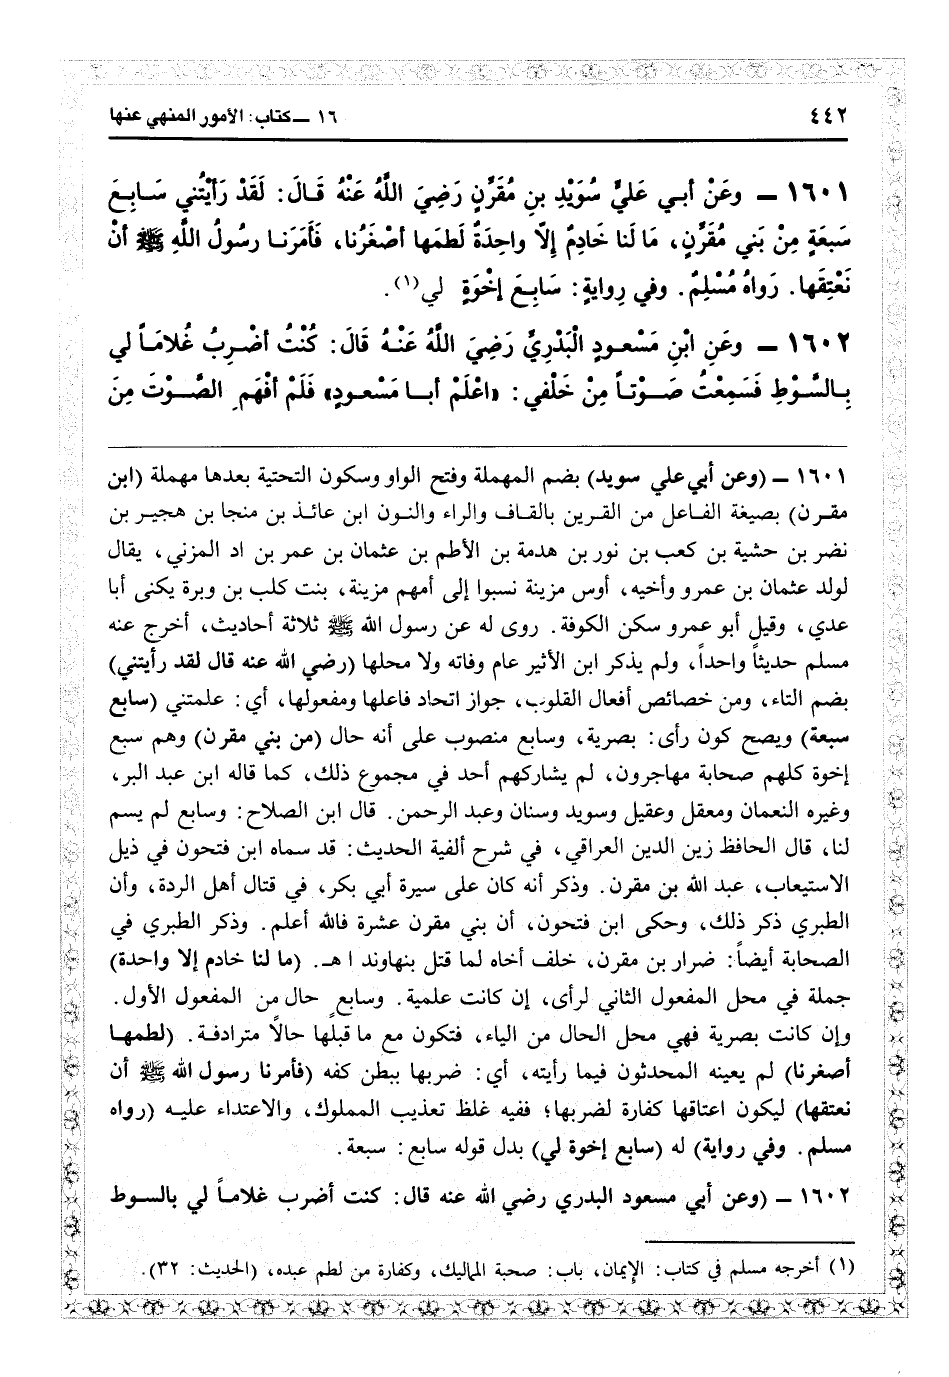 ٤٤٢
١٦ ــ كتاب: الأمور المنهي عنها
١٦٠١ ــ وعَنْ أبي عَليٍّ سُوَيْدِ بنِ مُقَرِّنٍ رَضِيَ اللَّهُ عَنْهُ قَالَ: لَقَدْ رَأيْتُني سَابِعَ
سَبعَةٍ مِنْ بَني مُقَرِّنٍ، مَا لَنا خَادِمٌ إلَّا واحِدَةٌ لَطَمَها أصْغَرُنا، فَأمَرَنا رسُولُ اللَّهِ ﷺ أنْ
نَعْتِقَها. رَواهُ مُسْلِمٌ. وفي رِوايةٍ: سَابِعَ إخْوَةٍ لي(١).
١٦٠٢ ــ وعَنِ ابْنِ مَسْعودٍ الْبَدْرِيِّ رَضِيَ اللَّهُ عَنْهُ قَالَ: كُنْتُ أضْرِبُ غُلاَمَاً لي
بِالسَّوْطِ فَسَمِعْتُ صَوْتاً مِنْ خَلْفي: «اعْلَمْ أبا مَسْعودٍ» فَلَمْ أفْهَمِ الصَّوْتَ مِنَ
١٦٠١ ــ (وعن أبي علي سويد) بضم المهملة وفتح الواو وسكون التحتية بعدها مهملة (ابن
مقرن) بصيغة الفاعل من القرين بالقاف والراء والنون ابن عائذ بن منجا بن هجير بن
نضر بن حشية بن كعب بن نور بن هدمة بن الأطم بن عثمان بن عمر بن اد المزني، يقال
لولد عثمان بن عمرو وأخيه، أوس مزينة نسبوا إلى أمهم مزينة، بنت كلب بن وبرة يكنى أبا
عدي، وقيل أبو عمرو سكن الكوفة. روى له عن رسول الله ﷺ ثلاثة أحاديث، أخرج عنه
مسلم حديثاً واحداً، ولم يذكر ابن الأثير عام وفاته ولا محلها (رضي الله عنه قال لقد رأيتني)
بضم التاء، ومن خصائص أفعال القلوب، جواز اتحاد فاعلها ومفعولها، أي: علمتني (سابع
سبعة) ويصح كون رأى: بصرية، وسابع منصوب على أنه حال (من بني مقرن) وهم سبع
إخوة كلهم صحابة مهاجرون، لم يشاركهم أحد في مجموع ذلك، كما قاله ابن عبد البر،
وغيره النعمان ومعقل وعقيل وسويد وسنان وعبد الرحمن. قال ابن الصلاح: وسابع لم يسم
لنا، قال الحافظ زين الدين العراقي، في شرح ألفية الحديث: قد سماه ابن فتحون في ذيل
الاستيعاب، عبد الله بن مقرن. وذكر أنه كان على سيرة أبي بكر، في قتال أهل الردة، وأن
الطبري ذكر ذلك، وحكى ابن فتحون، أن بني مقرن عشرة فالله أعلم. وذكر الطبري في
الصحابة أيضاً: ضرار بن مقرن، خلف أخاه لما قتل بنهاوند ا هـ. (ما لنا خادم إلا واحدة)
جملة في محل المفعول الثاني لرأى، إن كانت علمية. وسابع حال من المفعول الأول.
وإن كانت بصرية فهي محل الحال من الياء، فتكون مع ما قبلها حالًا مترادفة. (لطمها
أصغرنا) لم يعينه المحدثون فيما رأيته، أي: ضربها ببطن كفه (فأمرنا رسول الله ﷺ أن
نعتقها) ليكون اعتاقها كفارة لضربها؛ ففيه غلظ تعذيب المملوك، والاعتداء عليه (رواه
مسلم. وفي رواية) له (سابع إخوة لي) بدل قوله سابع: سبعة.
١٦٠٢ ــ (وعن أبي مسعود البدري رضي الله عنه قال: كنت أضرب غلاماً لي بالسوط
(١) أخرجه مسلم في كتاب: الإيمان، باب: صحبة المماليك، وكفارة من لطم عبده، (الحديث: ٣٢).